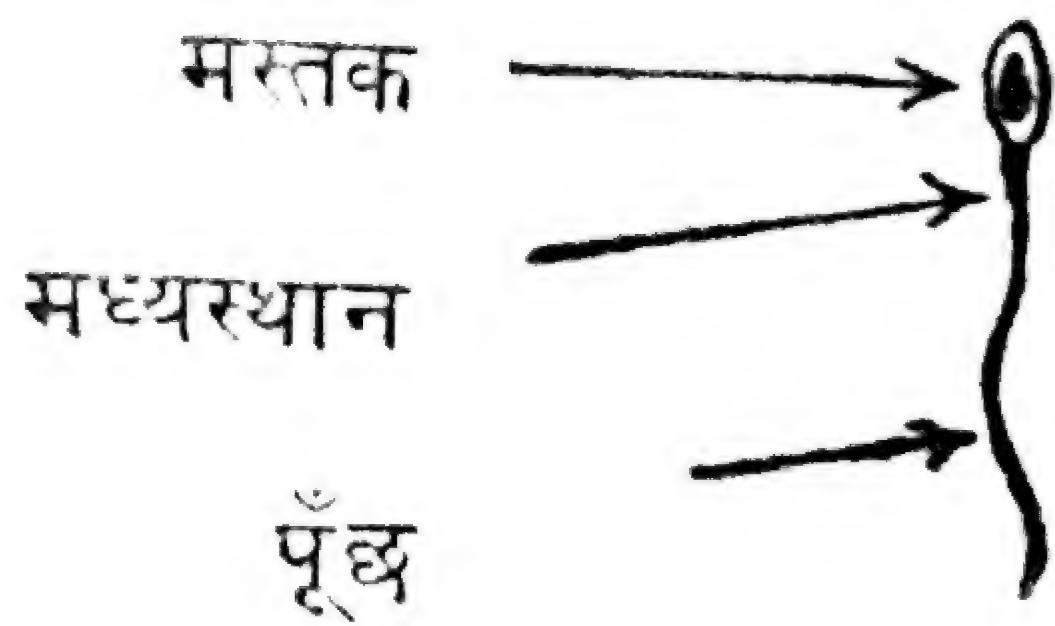 मस्तक
मध्यस्थान
पूँछ